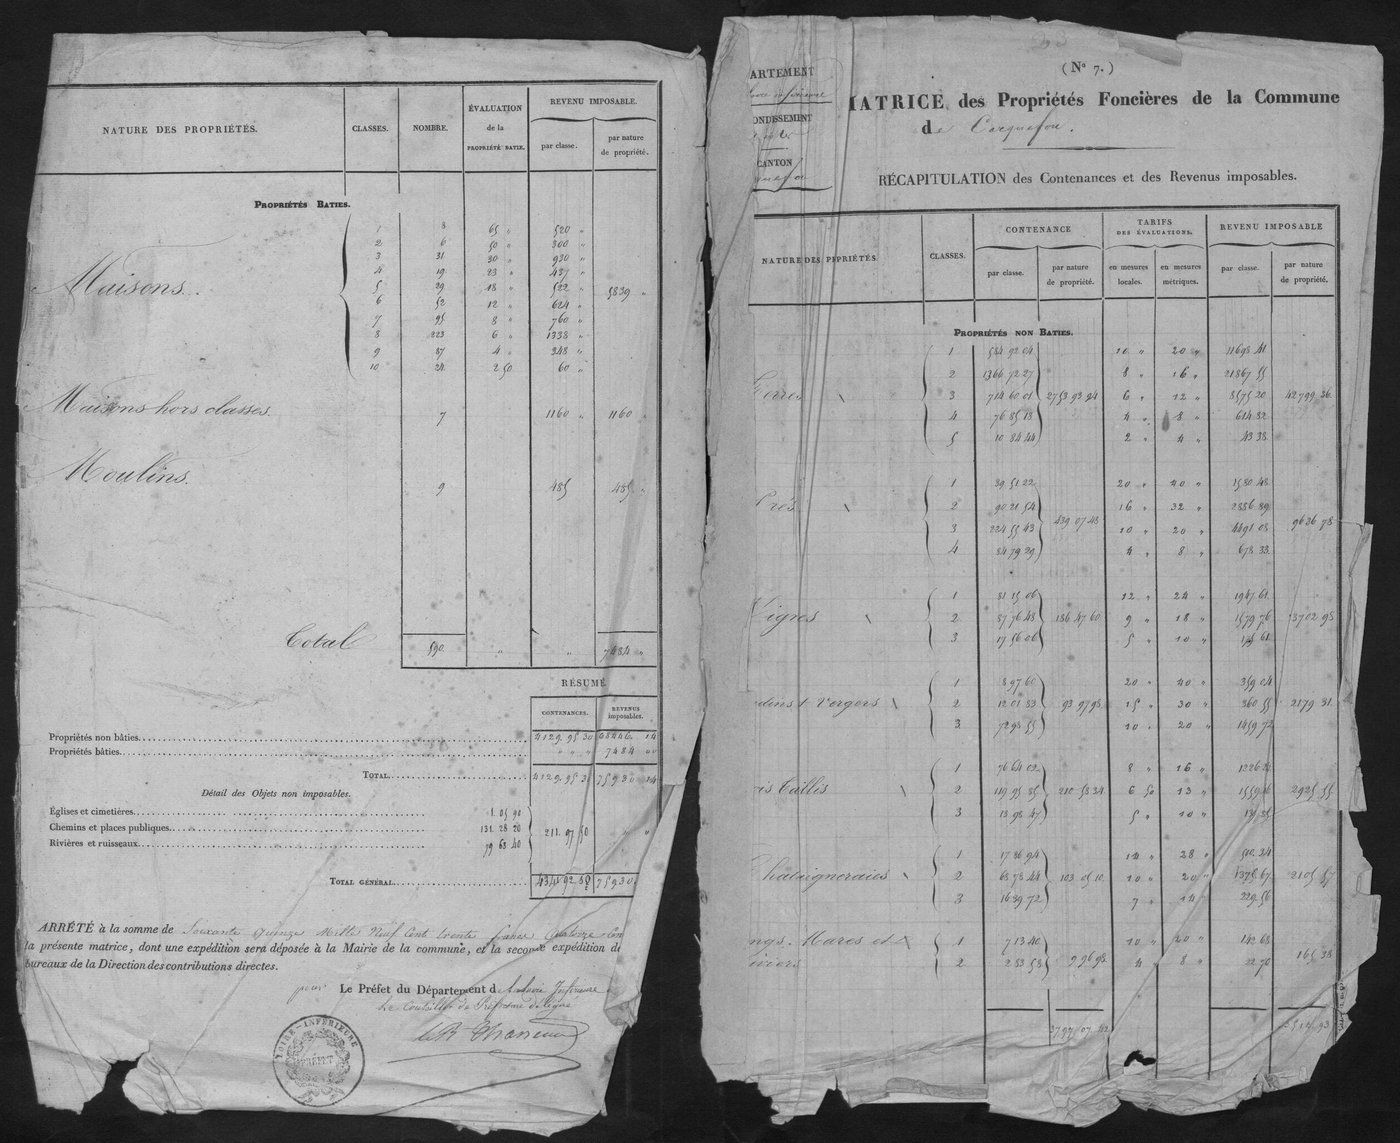 NATURE DES PROPRIÉTÉS. CLASSES. NOMBRE. ÉVALUATION de la PROPRIÉTÉ BATIE. REVENU IMPOSABLE. par classe. par nature de propriété.
PROPRIÉTÉS BATIES.
Maisons.
1 8 65 " 520 "
2 6 50 " 300 "
3 31 30 " 930 "
4 19 23 " 437 "
5 29 18 " 522 " 5839 "
6 52 12 " 624 "
7 95 8 " 760 "
8 223 6 " 1338 "
9 87 4 " 348 "
10 24 2 50 60 "
Maisons hors classes. 7 1160 " 1160 "
Moulins. 9 485 485 "
Total 590 " " 7484 "
RÉSUMÉ
CONTENANCES. REVENUS imposables.
Propriétés non bâties 4129. 95 30 68446. 14
Propriétés bâties " " " 7484 00
TOTAL 4129. 95 3 75930 14
Détail des Objets non imposables.
Églises et cimetières 1. 05 90
Chemins et places publiques 131. 28 20 211. 97 50 " "
Rivières et ruisseaux 79 63 40
TOTAL GÉNÉRAL 4341 92 80 75930.
ARRÊTÉ à la somme de Soixante quinze Mille Neuf Cent trente francs Quatorze
la présente matrice, dont une expédition sera déposée à la Mairie de la commune, et la seconde expédition
bureaux de la Direction des contributions directes.
pour Le Préfet du Département d Loire Inférieure
Le Conseiller de Préfecture délégué
LOIRE-INFÉRIEURE
PRÉFET
(N° 7.)
ARTEMENT
ONDISSEMENT
CANTON
MATRICE des Propriétés Foncières de la Commune
de Carquefou.
RÉCAPITULATION des Contenances et des Revenus imposables.
NATURE DES PROPRIÉTÉS. CLASSES. CONTENANCE par classe. par nature de propriété. TARIFS DES ÉVALUATIONS. en mesures locales. en mesures métriques. REVENU IMPOSABLE par classe. par nature de propriété.
PROPRIÉTÉS NON BATIES.
Terres
1 584 92 04 10 " 20 " 11698 41
2 1366 72 27 8 " 16 " 21867 55
3 714 60 01 2753 93 94 6 " 12 " 8575 20 42799 36.
4 76 85 18 4 " 8 " 614 82
5 10 84 44 2 " 4 " 43 38
Prés
1 39 51 22 20 " 40 " 1580 48
2 90 21 54 16 " 32 " 2886 89
3 224 55 43 439 07 48 10 " 20 " 4491 08 9636 78
4 84 79 29 4 " 8 " 678 33
Vignes
1 81 15 06 12 " 24 " 1947 61
2 87 76 48 186 47 60 9 " 18 " 1579 76 3702 98
3 17 56 06 5 " 10 " 175 61
dins & Vergers
1 8 97 60 20 " 40 " 359 04
2 12 01 83 93 97 98 15 " 30 " 360 55 2179 31
3 72 98 55 10 " 20 " 1459 72
is Taillis
1 76 64 02 8 " 16 " 1226 24
2 119 95 85 210 58 34 6 50 13 " 1559 46 2925 55
3 13 98 47 5 " 10 " 139 85
Chataigneraies
1 17 86 94 14 " 28 " 500. 34
2 68 78 44 103 05 10 10 " 20 " 1375 67 2105 57
3 16 39 72 7 " 14 " 229 56
ngs. Mares et
1 7 13 40 10 " 20 " 142 68
2 2 83 58 9 96 98 4 " 8 " 22 70 165 38
3797 07 42 93